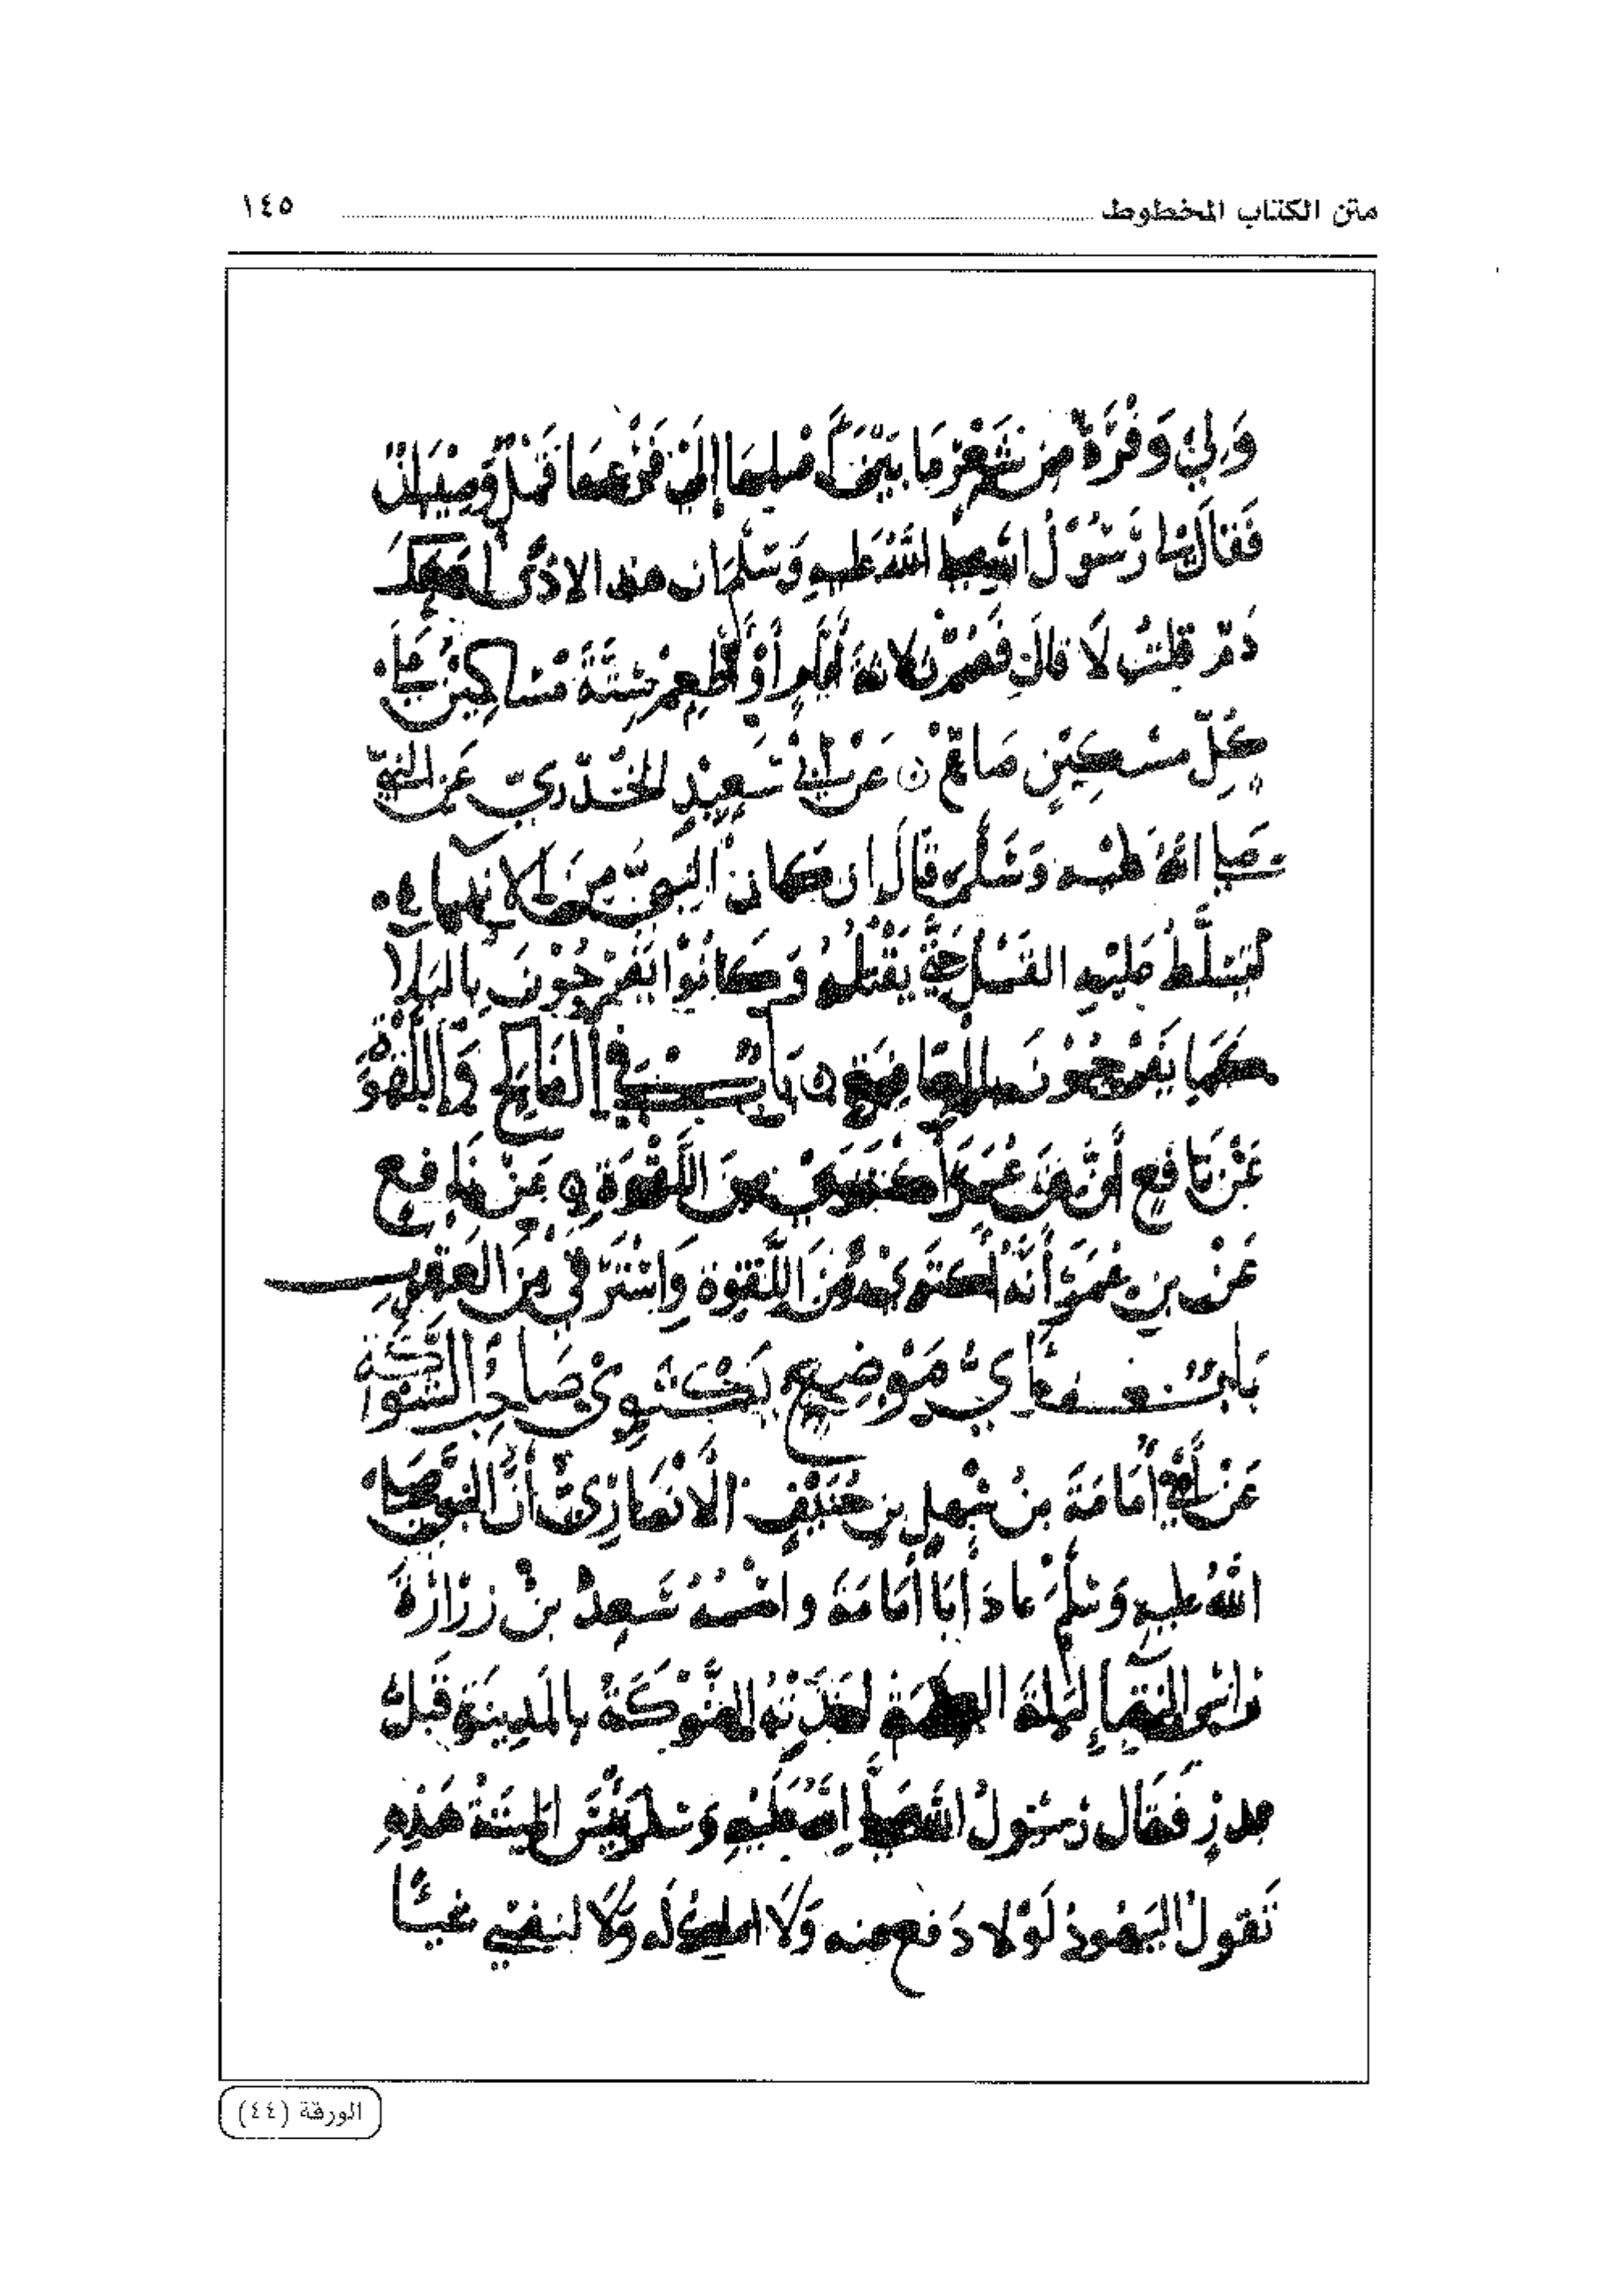 متن الكتاب المخطوط ١٤٥
وَلِيَ وَفْرَةٌ مِن شَعْرٍ مَا بَيْنَ أَصْلِهَا إِلَى فَرْعِهَا قَمْلٌ وَصِئْبَانٌ
فَقَالَ لِي رَسُوْلُ اللهِ صلى اللهُ عَليهِ وَسَلَّمَ ان هذا الاذَى أمعك
دَمٌ قلتُ لَا قالَ فَصُمْ ثلاثةَ أَيَّامٍ أَوْ أَطْعِمْ سِتَّةَ مَسَاكِيْنَ بين
كُلِّ مسْكِيْنٍ صَاعٌ عَنْ أبي سَعِيْدٍ الخُدْرِيّ عَن النبيّ
صَلى اللهُ عليه وَسَلَّمَ قَالَ ان كان النبيُّ مِنَ الانبياء
ليُسَلَّطُ عَليْهِ القَمْلُ حَتَّى يَقْتُلَهُ وَكَانُوْا يَفْرَحُوْنَ بِالبَلَا
كمَا يَفْرَحُوْنَ بالعَافِيَةِ بَابٌ في الفَالِج وَاللَّقْوَة
عَنْ نَافِع أن بن عُمَرَ اكتَوَى مِنَ اللَّقْوَةِ عَنْ نَافِع
عَنْ بن عُمَرَ أَنَّهُ اكتَوَى مِنَ اللَّقْوة وَاسْتَرْقى مِنَ العَقْرب
بَابٌ في أيّ مَوْضِعٍ يَكْتَوِيْ صَاحِبُ الشَّوْكَة
عَنْ أَبِي أُمَامَةَ بنْ سَهْلِ بن حُنَيْفٍ الْانْصَارِيّ أَنَّ النَّبيّ صَلى
اللهُ عليهِ وَسَلَّمَ عادَ أَبَا أُمَامَةَ واسْمُهُ سَعدُ بنْ زرَارَةَ
رَاس النقباء لَيْلَةَ العقبة أخَذَتْهُ الشَّوْكَةُ بِالمَدِينَةِ قَبْلَ
بدرٍ فَقَال رَسُولُ اللهِ صَلَّى اللهُ عَلَيْهِ وَسَلم بِئْسَ الميتَةُ هَذِهِ
تَقولُ اليَهُودُ لَوْلا دَفع عنه وَلَا املك له وَلَا لنفسي شَيْئًا
الورقة (٤٤)